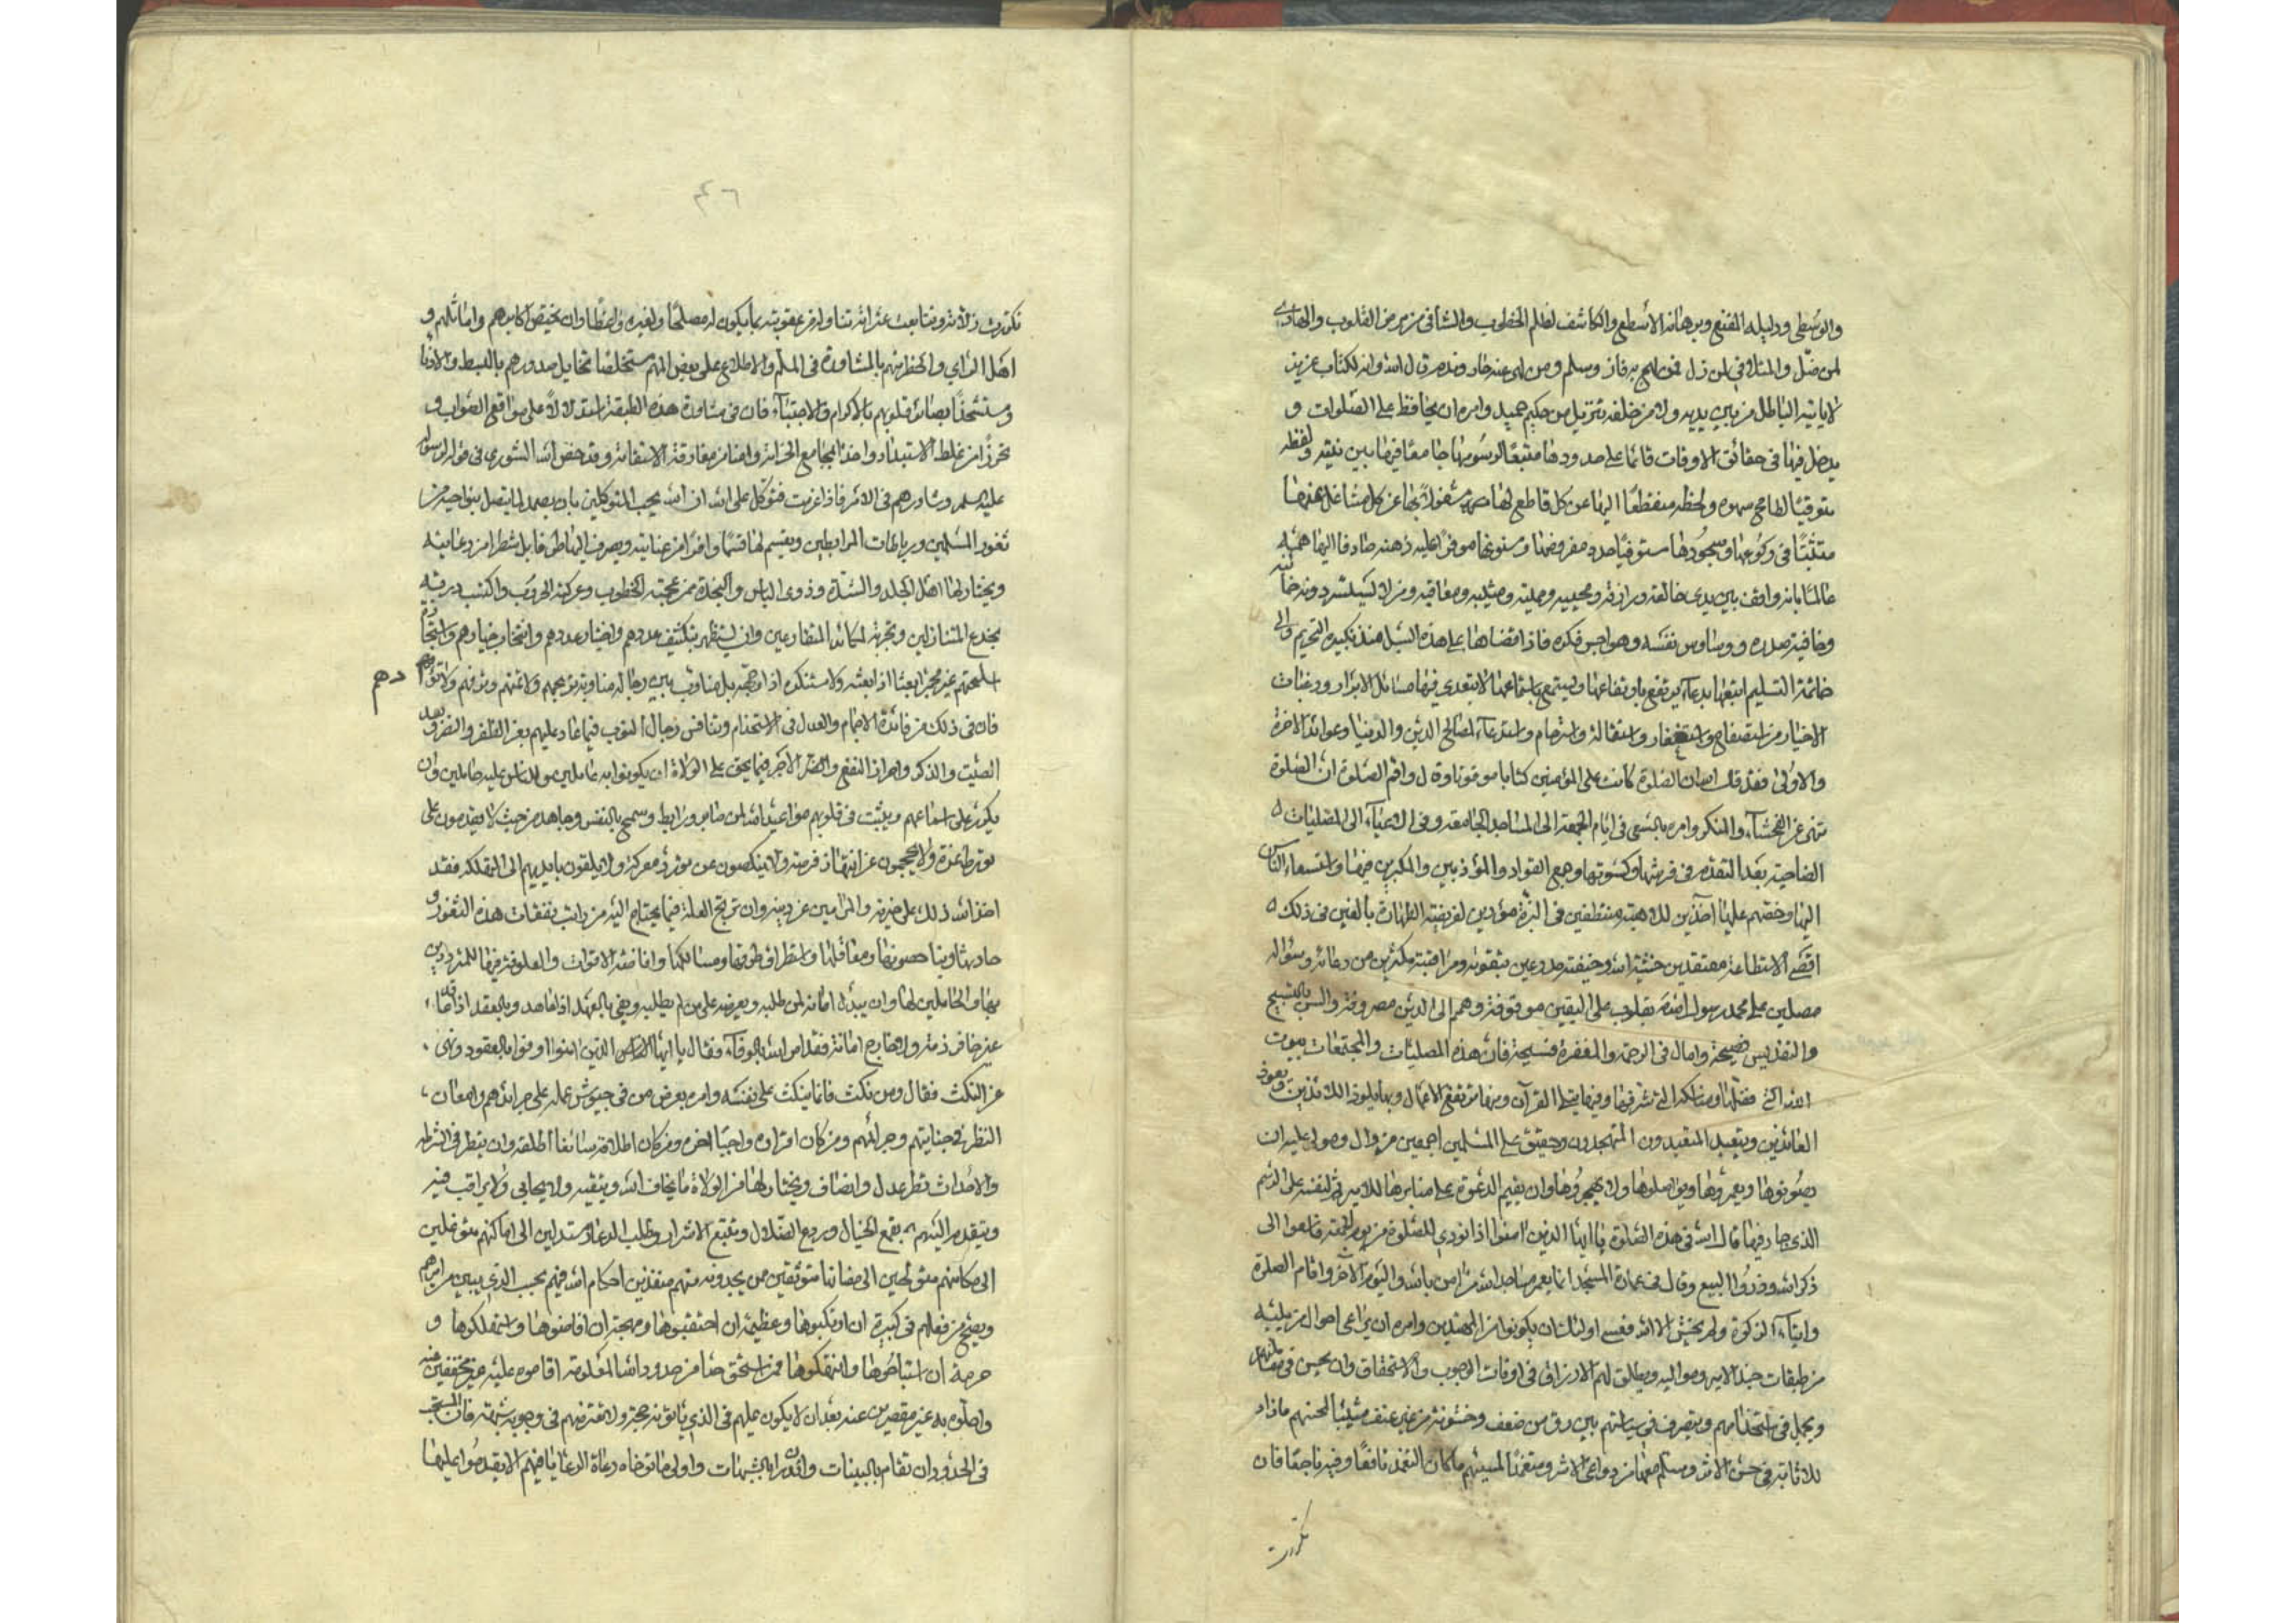 والوسطى ودليله المقنع وبرهانه الاسطع والكاشف لظلم الخطوب والشافي من مرض القلوب والهادي
لمن ضل والمتلافي لمن زل فمن لهج به فاز وسلم ومن لهى عنه خاب وندم قال الله وانه لكتاب عزيز
لا ياتيه الباطل من بين يديه ولا من خلفه تنزيل من حكيم حميد وامره ان يحافظ على الصلوات و
يدخل فيها في حقائق الاوقات قائما على حدودها متبعا لرسومها جامعا فيها بين نيته ولفظه
متوقيا لطامح سهوه ولحظه منقطعا اليها عن كل قاطع لها مشغولا بها عن كل مشاغل عنها
متثبتا في ركوعها وسجودها مستوفيا عدد مفروضها ومسنونها موفرا عليه ذهنه صارفا اليها همته
عالما بانه واقف بين يدي خالقه ورازقه ومحييه ومميته ومثيبه ومعاقبه ومن لا يستتر دونه خائنة
وخافية صدره ووساوس نفسه وهواجس فكره فاذا قضاها على هذه السبيل منذ تكبيرة التحريم والى
خاتمة التسليم اتبعها بدعاء يرتفع بارتفاعها ويستمع باستماعها لا يتعدى فيها مسائل الابرار ورغبات
الاخيار من استصفاح واستغفار واستقالة واسترحام واستدعاء لمصالح الدين والدنيا وعوائد الاخرة
والاولى فقد قال الله ان الصلوة كانت على المؤمنين كتابا موقوتا وقال واقم الصلوة ان الصلوة
تنهى عن الفحشاء والمنكر وامره بالسعي في ايام الجمعة الى المساجد الجامعة وفي الاعياد الى المصليات
الضاحية بعد التقدم في فرشها وكسوتها وجمع القوام والمؤذنين والمكبرين فيها واستسعاء الناس
اليها وحضهم عليها آخذين للاهبة متنظفين في البزة مؤدين لفريضة الطهارة بالغين في ذلك
اقصى الاستطاعة معتقدين خشية الله وخيفته مدرعين بتقواه ومراقبته مكثرين من دعائه وسؤاله
مصلين على محمد رسول الله بقلوب على اليقين موقوفة وهمم الى الدين مصروفة والسن بالتسبيح
والتقديس فصيحة وامال في الرحمة والمغفرة فسيحة فان هذه المصليات والمجتمعات بيوت
الله التي فضلها ومناسكه التي شرفها وفيها يتلى القرآن ومنها ترتفع الاعمال وبها يلوذ اللائذين ويعوذ
العائذين ويتعبد المتعبدون المتهجدون وحقيق على المسلمين اجمعين من وال ومولى عليه ان
يصونوها ويعمروها ويواصلوها ولا يهجروها وان يقيم الدعوة على منابرها للامير ثم لنفسه على الرسم
الذي جار فيها قال الله في هذه الصلوة يا ايها الذين امنوا اذا نودي للصلوة من يوم الجمعة فاسعوا الى
ذكر الله وذروا البيع وقال في عمارة المسجد انما يعمر مساجد الله من امن بالله واليوم الآخر واقام الصلوة
وايتاء الزكوة ولم يخش الا الله فعسى اولئك ان يكونوا من المهتدين وامره ان يراعي احوال من يليه
من طبقات جند الامير ومواليه ويطلق لهم الارزاق في اوقات الوجوب والاستحقاق وان يحسن في معاملتهم
ويجمل في استخدامهم ويتصرف في سياستهم بين رفق من غير ضعف وخشونة من غير عنف مثيبا لمحسنهم ما زاد
للاثابة في حسن الاثر وسلم معها من دواعي الاشر ومتغمدا لمسيئهم ما كان التغمد نافعا وفيه ناجعا فان
تكررت
٤٦
تكررت زلاته وتتابعت عثراته تناوله من عقوبته بما يكون له مصلحا ولغيره واعظا وان يختص اكابرهم واماثلهم و
اهل الراي والخطر منهم بالمشاورة في الملم والاطلاع على بعض المهم مستخلصا نخايل صدورهم بالبسط والادنا
ومستشحذا بصائر قلوبهم بالاكرام والاجتباء فان في مشاورة هذه الطبقة استدلالا على مواقع الصواب و
تحرزا من غلط الاستبداد واخذا بمجامع الحزامة وامنا من مفارقة الاستقامة وقد حض الله الشورى في قوله لرسوله
عليه السلم وشاورهم في الامر فاذا عزمت فتوكل على الله ان الله يحب المتوكلين بان يصمد لما يتصل بنواحيه من
ثغور المسلمين ورباطات المرابطين ويقسم لها قسما وافرا من عنايته ويصرف اليها طرفا بل شطرا من رعايته
ويختار لها اهل الجلد والشدة وذوي الباس والنجدة ممن عجمته الخطوب وعركته الحروب واكتسب دربة
بخدع المتنازلين وتجربة لمكائد المتقارعين وان يستظهر بتكثيف عددهم واختيار عددهم وانتخاب خيلهم واستجادة
اسلحتهم غير مجمر بعثا اذا بعثه ولا مستكره اذا وجهه بل يناوب بين رجاله مناوبة تريحهم ولا تملهم وترفههم ولا تؤودهم
دهم
فان في ذلك من فائدة الاجمام والعدل في الاستخدام وينافس رجال النوب فيما عاد عليهم بعز الظفر والنصر وبعد
الصيت والذكر واحراز النفع والاجر فيما يحق على الولاة ان يكونوا به عاملين وللناس عليه حاملين وان
يكرر على اسماعهم ويثبت في قلوبهم مواعيد الله لمن صابر ورابط وسمح بالنفس وجاهد من حيث لا يقدمون على
تورط غزة ولا يحجمون عن انتهاز فرصة ولا ينكصون عن تورد معركة ولا يلقون بايديهم الى التهلكة فقد
اخذ الله ذلك على خلقه والمرامين عن دينه وان يزيح العلة فيما يحتاج اليه من راتب نفقات هذه الثغور و
حادثها وبنا حصونها ومعاقلها واستطراق طرقها ومسالكها وافاضة الاقوات والعلوفة فيها للمترددين
بها والحاملين لها وان يبذل امانه لمن طلبه ويعرضه على من لم يطلبه ويفي بالعهد اذا عاهد وبالعقد اذا عاقد
غير خافر ذمة ولا جارح امانة فقد امر الله بالوفاء فقال يا ايها الذين امنوا اوفوا بالعقود ونهى
عن النكث فقال ومن نكث فانما ينكث على نفسه وامره بعرض من في حبوس عمله على جرائدهم وامعان
النظر في جناياتهم وجرائمهم ومن كان اقراره واجبا اقره ومن كان اطلاقه سائغا اطلقه وان ينظر في الشرطة
والاحداث نظر عدل وانصاف ويختار لها من الولاة ما يخاف الله ويتقيه ولا يحابي ولا يراقب فيه
ويتقدم اليهم بقمع الجهال وردع الضلال وتتبع الاشرار وطلب الدعار مستدلين الى اماكنهم متوغلين
الى مكامنهم متولجين الى مضانها متوثقين ممن يجدونه منهم منفذين احكام الله فيهم بحسب الذي يبين من امرهم
ويصح من فعلهم في كبيرة ان ارتكبوها وعظيمة ان احتقبوها ومهجة ان افاضوها واستهلكوها و
حرمة ان استباحوها وانتهكوها فمن استحق حدا من حدود الله المعلومة اقاموه عليه غير مخففين منه
واحلوه به غير مقصرين عنه بعد ان لا يكون عليهم في الذي ياتون حجة ولا تعترضهم في وجوبه شبهة فان المستحب
في الحدود ان تقام بالبينات وان تدرا بالشبهات واولى ما توخاه رعاة الرعايا فيهم الا يقدموا عليها